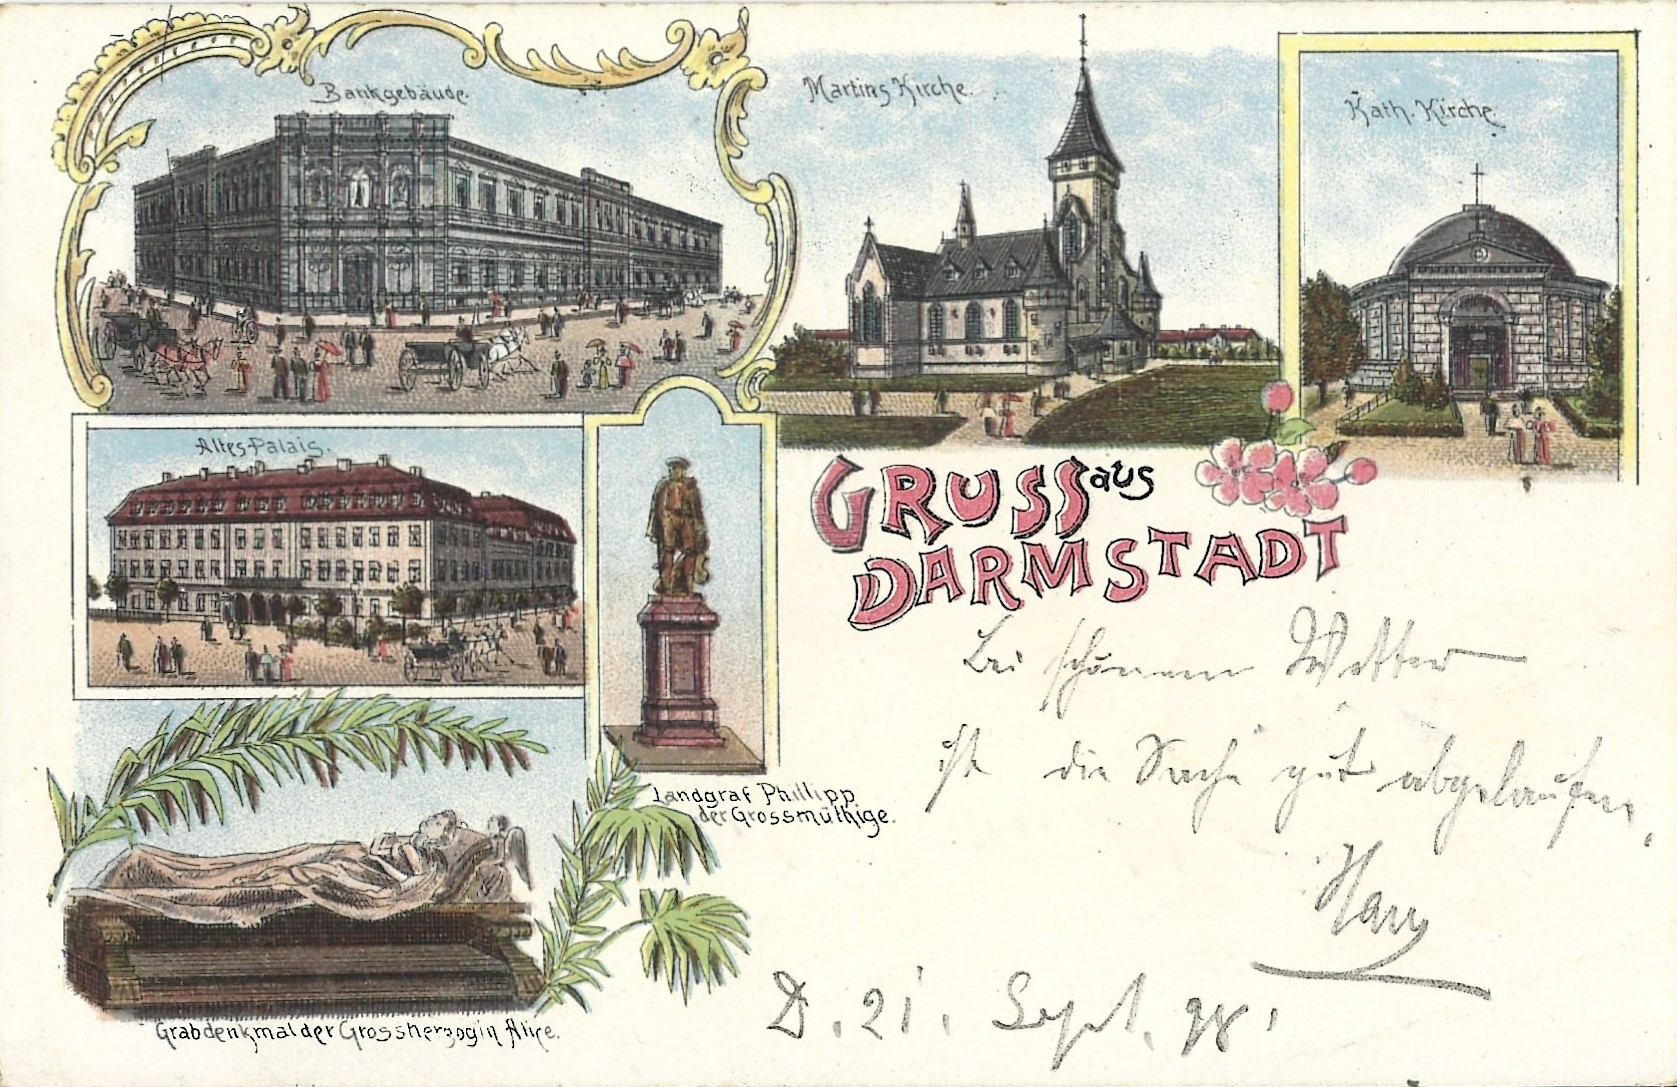 Bankgebäude.
Martins Kirche.
Kath. Kirche.
Altes-Palais.
GRUSS aus
DARMSTADT
Landgraf Phillipp
der Grossmüthige.
Grabdenkmal der Grossherzogin Alice.
Bei schönem Wetter
ist die Sache gut abgelaufen,
Harry
D. 21. Sept. 98.